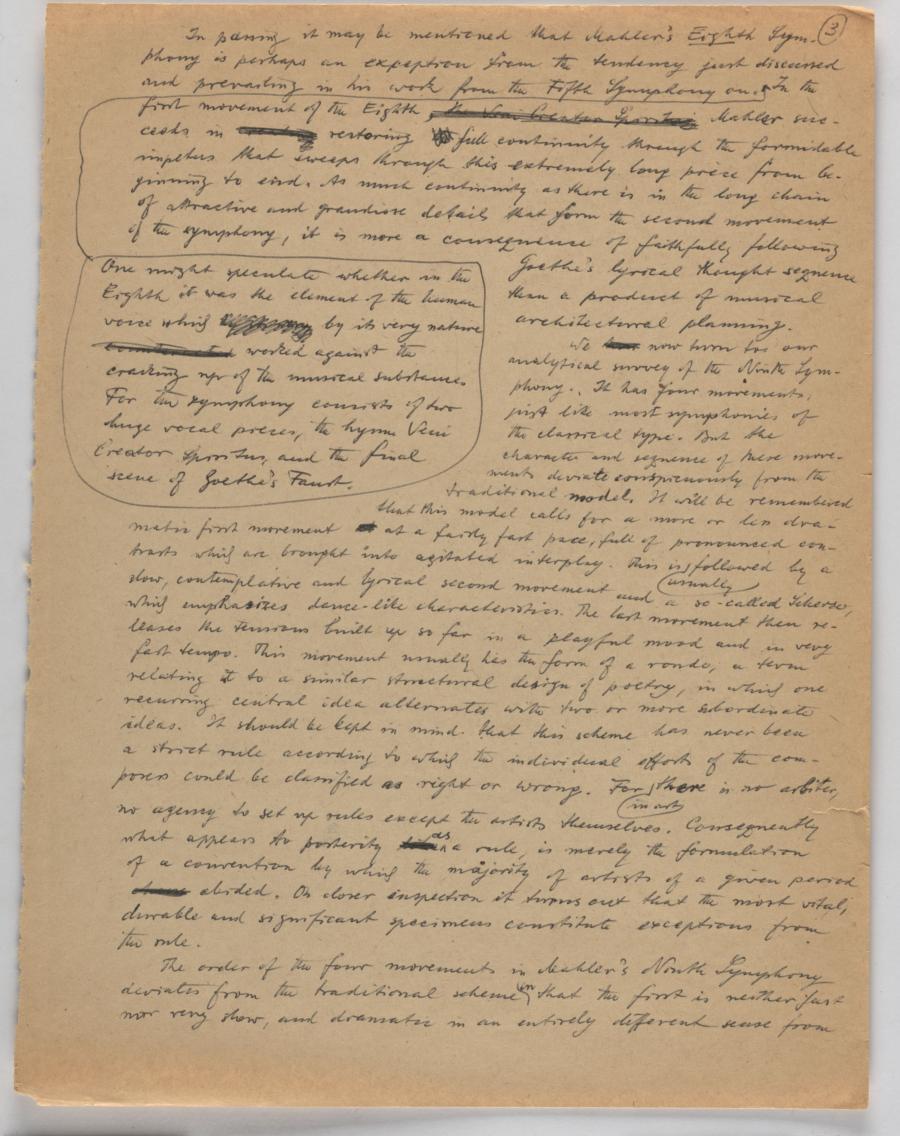 3
In passing it may be mentioned that Mahler's Eighth Sym-
phony is perhaps an exception from the tendency just discussed
and prevailing in his work from the Fifth Symphony on. In the
first movement of the Eighth, the Veni Creator Spiritus, Mahler suc-
ceeds in restoring full continuity through the formidable
impetus that sweeps through this extremely long piece from be-
ginning to end. As much continuity as there is in the long chain
of attractive and grandiose details that form the second movement
of the symphony, it is more a consequence of faithfully following
Goethe's lyrical thought sequence
than a product of musical
architectural planning.
One might speculate whether in the
Eighth it was the element of the human
voice which by its very nature
counteracted worked against the
cracking up of the musical substance.
For the symphony consists of two
huge vocal pieces, the hymn Veni
Creator Spiritus, and the final
scene of Goethe's Faust.
We now turn to our
analytical survey of the Ninth Sym-
phony. It has four movements,
just like most symphonies of
the classical type. But the
character and sequence of these move-
ments deviate conspicuously from the
traditional model. It will be remembered
that this model calls for a more or less dra-
matic first movement at a fairly fast pace, full of pronounced con-
trasts which are brought into agitated interplay. This is followed by a
usually
slow, contemplative and lyrical second movement and a so-called Scherzo,
which emphasizes dance-like characteristics. The last movement then re-
leases the tensions built up so far in a playful mood and in very
fast tempo. This movement usually has the form of a rondo, a term
relating it to a similar structural design of poetry, in which one
recurring central idea alternates with two or more subordinate
ideas. It should be kept in mind that this scheme has never been
a strict rule according to which the individual efforts of the com-
posers could be classified as right or wrong. For there is no arbiter,
in art
no agency to set up rules except the artists themselves. Consequently
what appears to posterity as a rule, is merely the formulation
of a convention by which the majority of artists of a given period
abided. On closer inspection it turns out that the most vital,
durable and significant specimens constitute exceptions from
the rule.
The order of the four movements in Mahler's Ninth Symphony
deviates from the traditional scheme in that the first is neither fast
nor very slow, and dramatic in an entirely different sense from